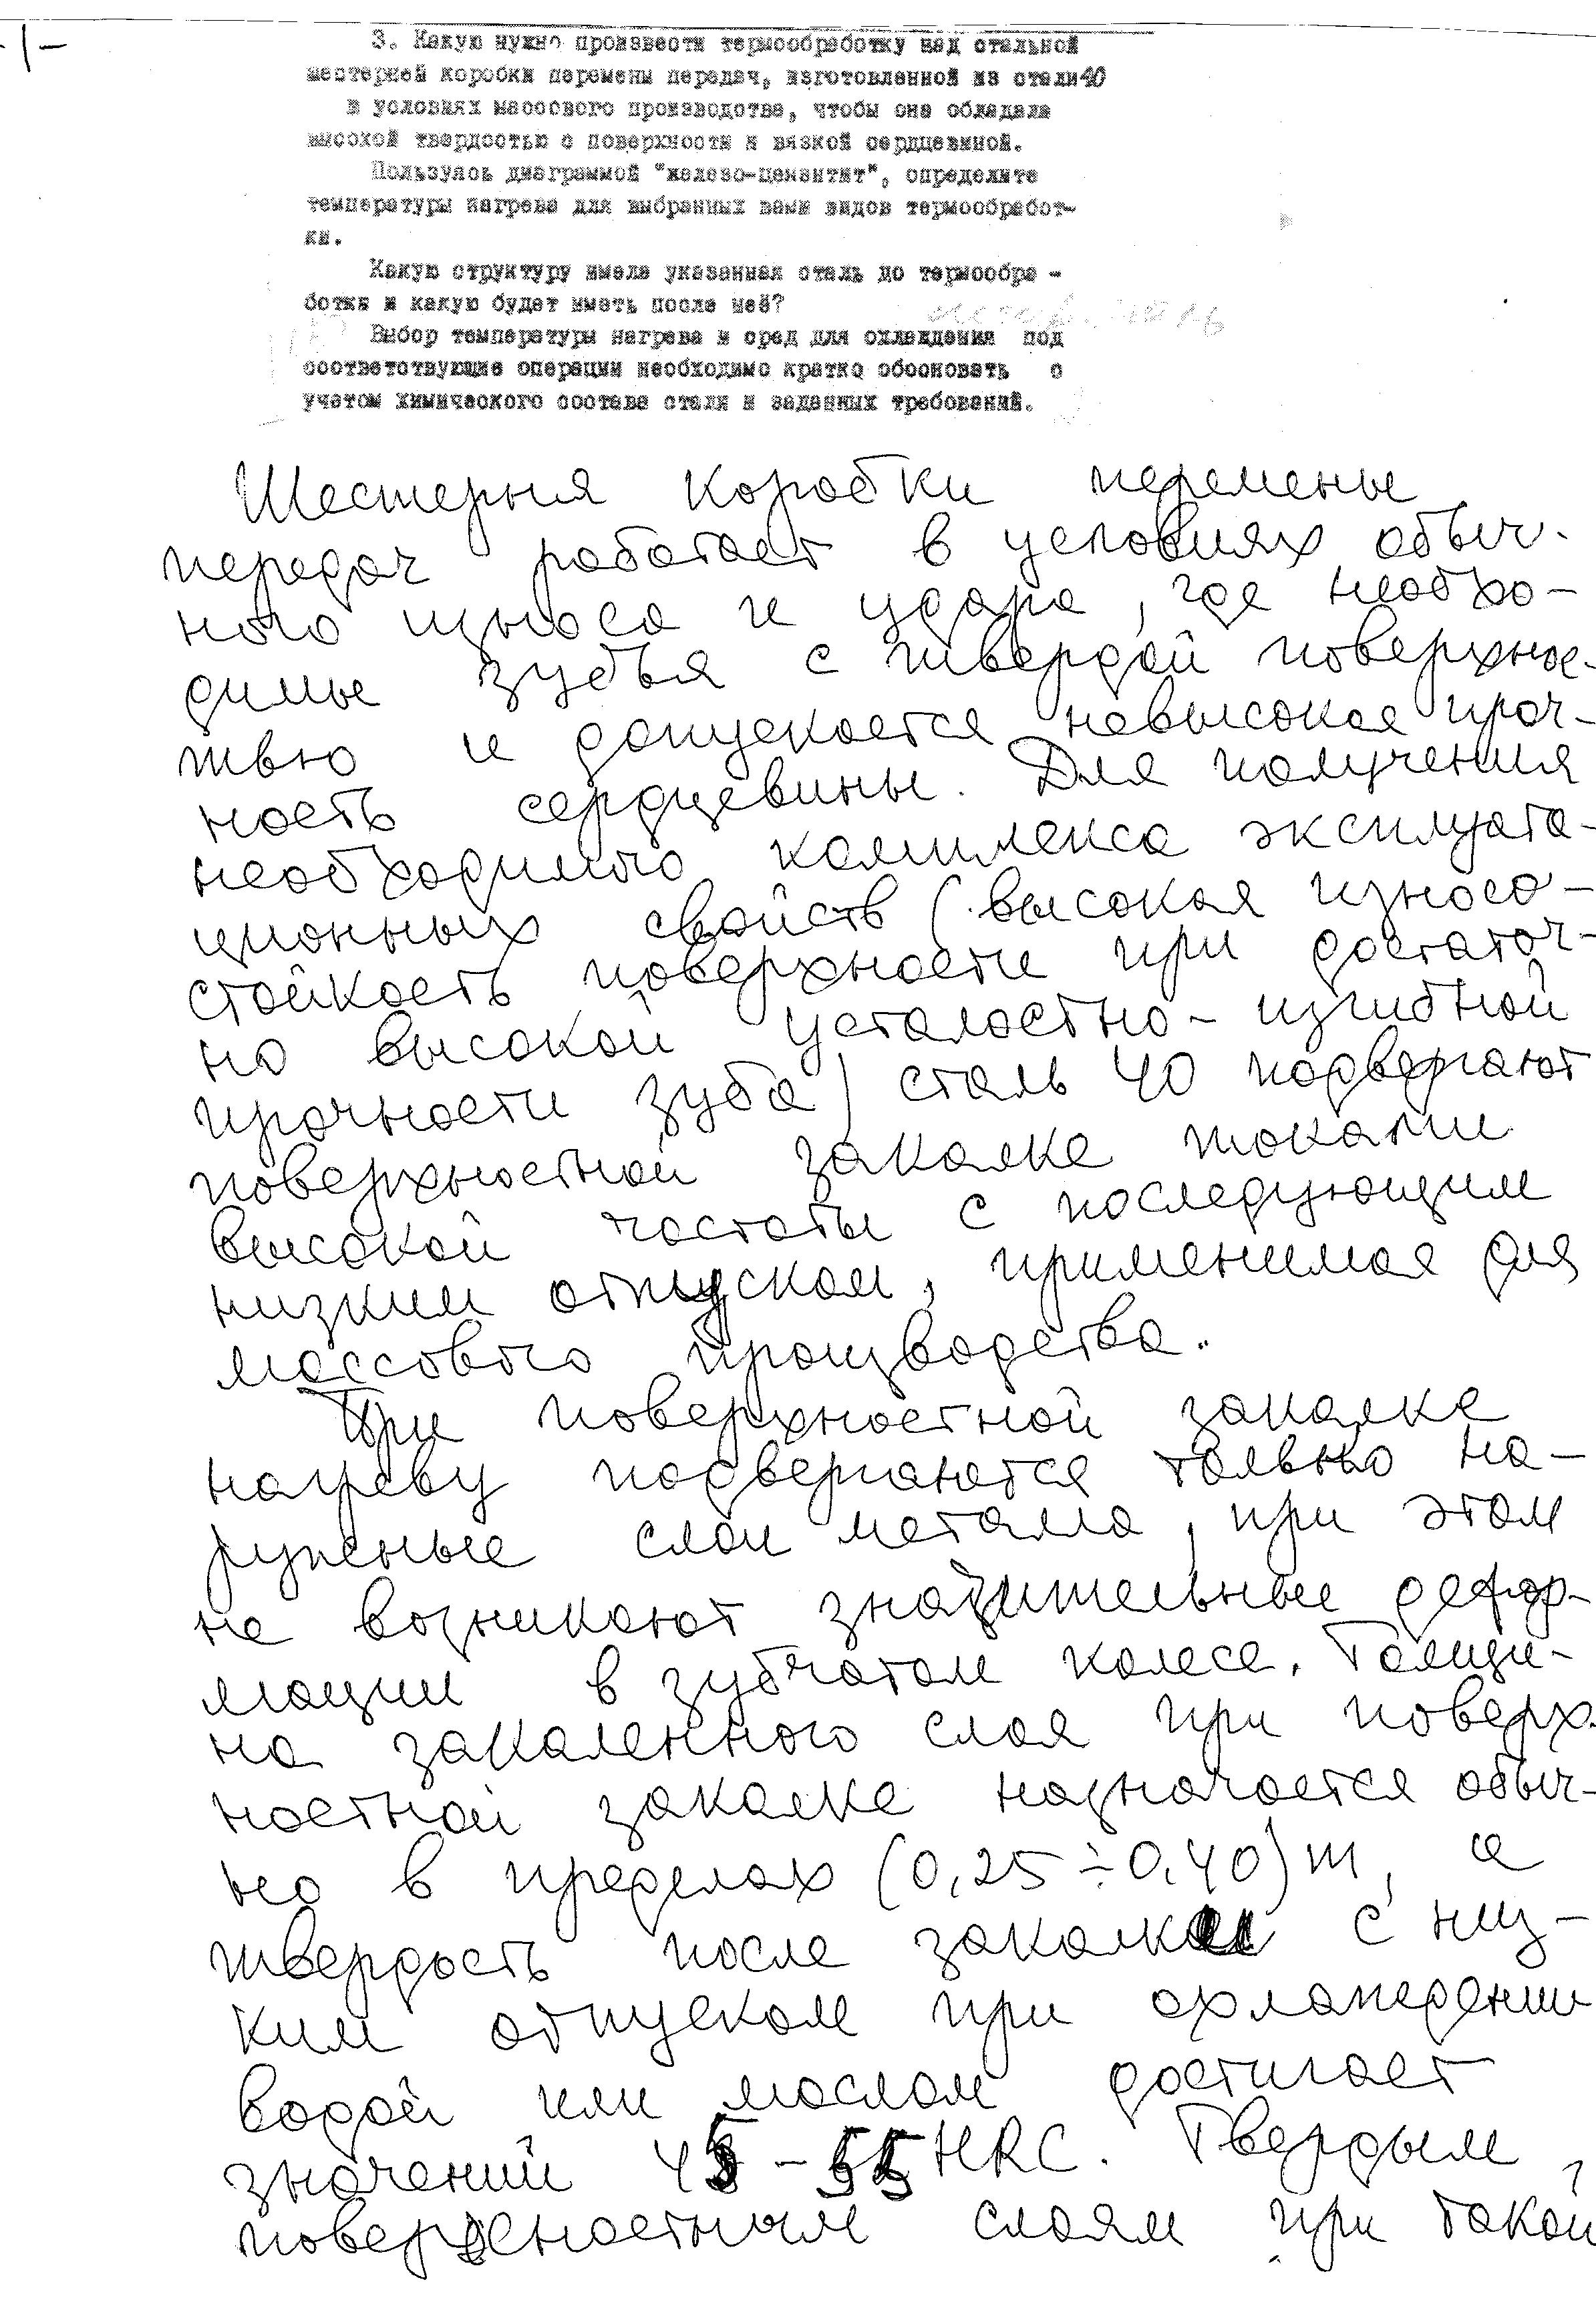 -1-
3. Какую нужно произвести термообработку над стальной
шестерней коробки перемены передач, изготовленной из стали 40
в условиях массового производства, чтобы она обладала
высокой твердостью с поверхности и вязкой сердцевиной.
Пользуясь диаграммой "железо-цементит", определите
температуры нагрева для выбранных вами видов термообработ-
ки.
Какую структуру имела указанная сталь до термообра -
ботки и какую будет иметь после неё?
Выбор температуры нагрева и сред для охлаждения под
соответствующие операции необходимо кратко обосновать с
учетом химического состава стали и заданных требований.
Шестерня коробки перемены
передач работает в условиях обыч-
ного износа и удара, где необхо-
димы зубья с твердой поверхнос-
тью и допускается невысокая проч-
ность сердцевины. Для получения
необходимого комплекса эксплуата-
ционных свойств (высокая износо-
стойкость поверхности при достаточ-
но высокой усталостно-изгибной
прочности зуба) сталь 40 подвергают
поверхностной закалке токами
высокой частоты с последующим
низким отпуском, применимая для
массового производства.
При поверхностной закалке
нагреву подвергаются только на-
ружные слои металла, при этом
не возникают значительные дефор-
мации в зубчатом колесе. Толщи-
на закаленного слоя при поверх-
ностной закалке назначается обыч-
но в пределах (0,25÷0,40)m, а
твердость после закалки с низ-
ким отпуском при охлаждении
водой или маслом достигает
значений 45-55 HRC. Твердым
поверхностным слоям при такой